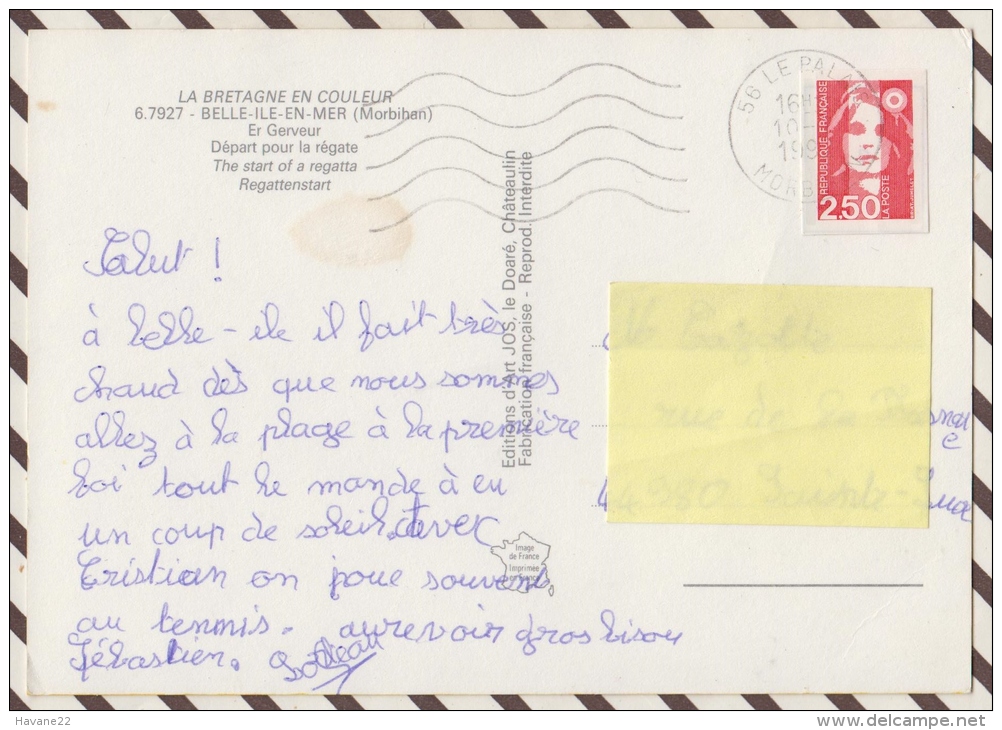 LA BRETAGNE EN COULEUR
6.7927 - BELLE-ILE-EN-MER (Morbihan)
Er Gerveur
Départ pour la régate
The start of a regatta
Regattenstart
56 LE PALA
16H
10-
199
MORB
RÉPUBLIQUE FRANÇAISE
2.50
LA POSTE
Salut !
à belle - ile il fait très
chaud dès que nous sommes
allez à la plage à la première
foi tout le monde à eu
un coup de soleil. avec
Cristian on joue souvent
au tennis. aurevoir gros bisou
Sébastien.
Editions d'Art JOS, le Doaré, Châteaulin
Fabrication française - Reprod. Interdite
Image
de France
Imprimée
en France
rue de la
44980 Sainte-Luce
Havane22
www.delcampe.net